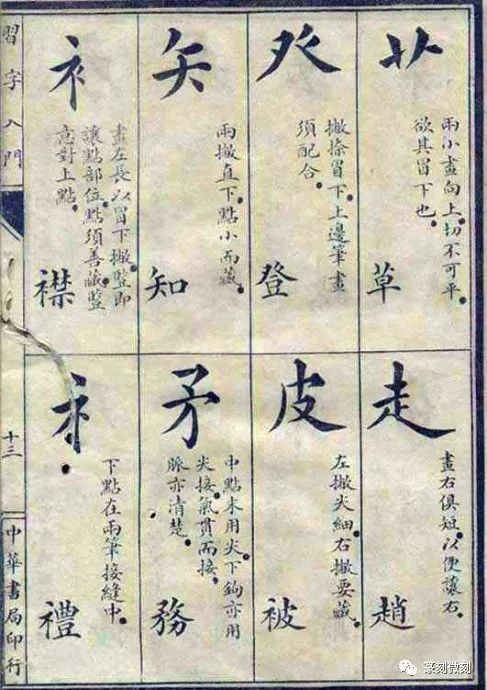 艹
兩小畫向上。切不可平。
欲其冒下也。
草
癶
撇捺冒下。上邊筆畫
須配合。
登
矢
兩撇直下。點小而藏。
知
衤
畫左長以冒下。撇豎即
讓點部位。點須善藏。豎
意對上點。
襟
走
畫右俱短。以便讓右。
趙
皮
左撇尖細。右撇要藏。
被
矛
中點末用尖。下鉤亦用
尖接。氣貫而接。
脈亦清楚。
務
礻
下點在兩筆接縫中。
禮
習字入門
十三
中華書局印行
篆刻微刻